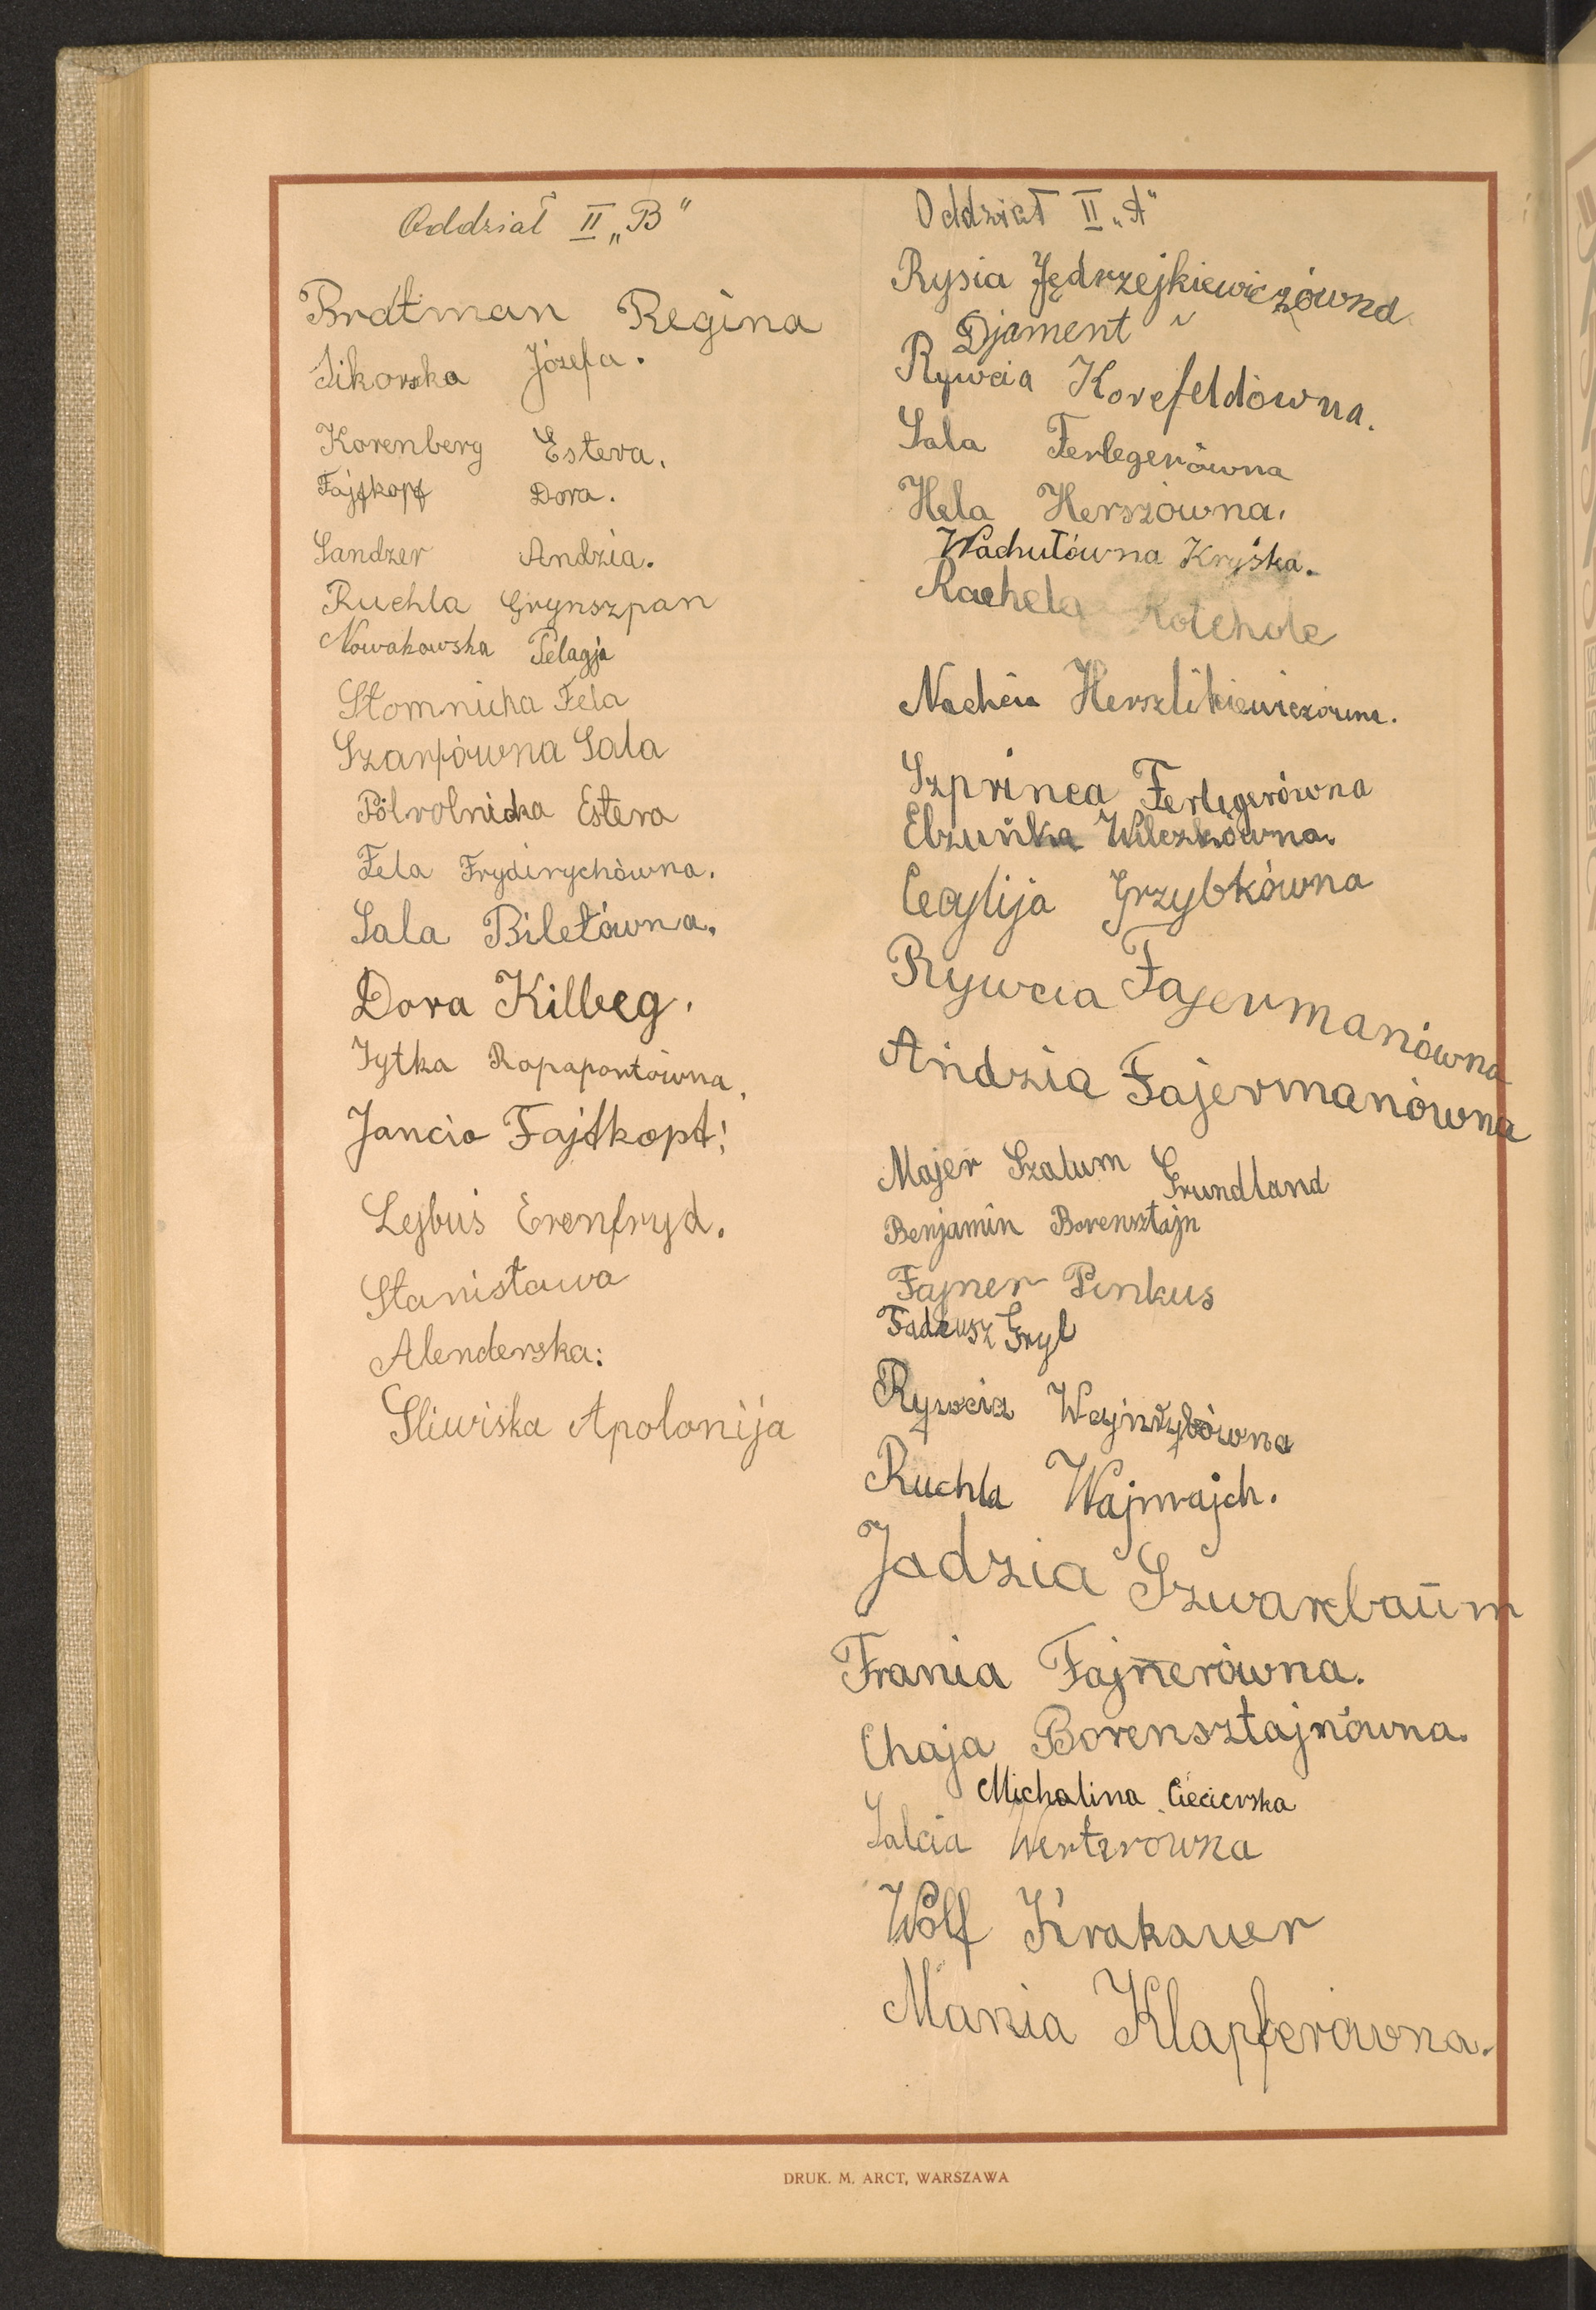 Oddział II „B"
Bratman Regina
Sikorska Józefa.
Korenberg Estera.
Fajfkopf Dora.
Sandzer Andzia.
Ruchla Grynszpan
Nowakowska Pelagja
Słomnicka Fela
Szarfówna Sala
Pólrolnicka Estera
Fela Frydirychówna.
Sala Biletówna.
Dora Killbeg.
Jytka Rapaportówna,
Jancia Fajtkopt!
Lejbuś Erenfryd.
Stanisława
Alenderska:
Sliwiska Apolonija
Oddział II „A"
Rysia Jędrzejkiewiczówna
Djament
Rywcia Korefeldówna.
Sala Ferlegerówna
Hela Herszówna.
Wachułówna Kryśka.
Rachela Rotchole
Nachcia Herszlikiewiczówna.
Szprinca Ferlegerówna
Elzuńka Wilczkówna.
Cecylija Grzybkówna
Rywcia Fajermanówna
Andzia Fajermanówna
Majer Szalum Grundland
Benjamin Borensztajn
Fajner Pinkus
Tadeusz Gryl
Rywcia
Ruchla Wajnrajch.
Jadzia Szwarcbaum
Frania Fajnerówna.
Chaja Borensztajnówna.
Michalina Ciecierska
Salcia Werterówna
Wolf Krakauer
Mania Klapferówna.
DRUK. M. ARCT, WARSZAWA